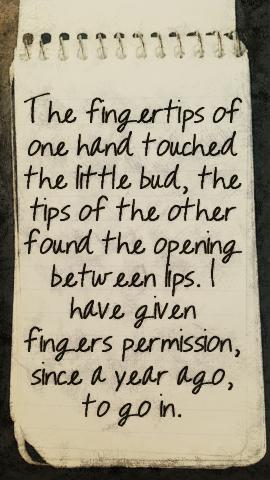 The fingertips of
one hand touched
the little bud, the
tips of the other
found the opening
between lips. I
have given
fingers permission,
since a year ago,
to go in.